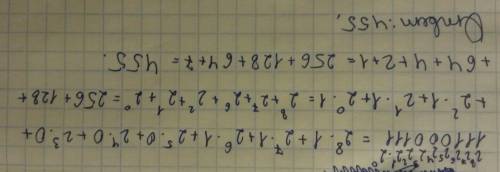 2⁸2⁷2⁶2⁵2⁴2³2²2¹2⁰
111000111 = 2⁸·1+2⁷·1+2⁶·1+2⁵·0+2⁴·0+2³·0+
+2²·1+2¹·1+2⁰·1=2⁸+2⁷+2⁶+2²+2¹+2⁰=256+128+
+64+4+2+1=256+128+64+7=455.
Ответ: 455.